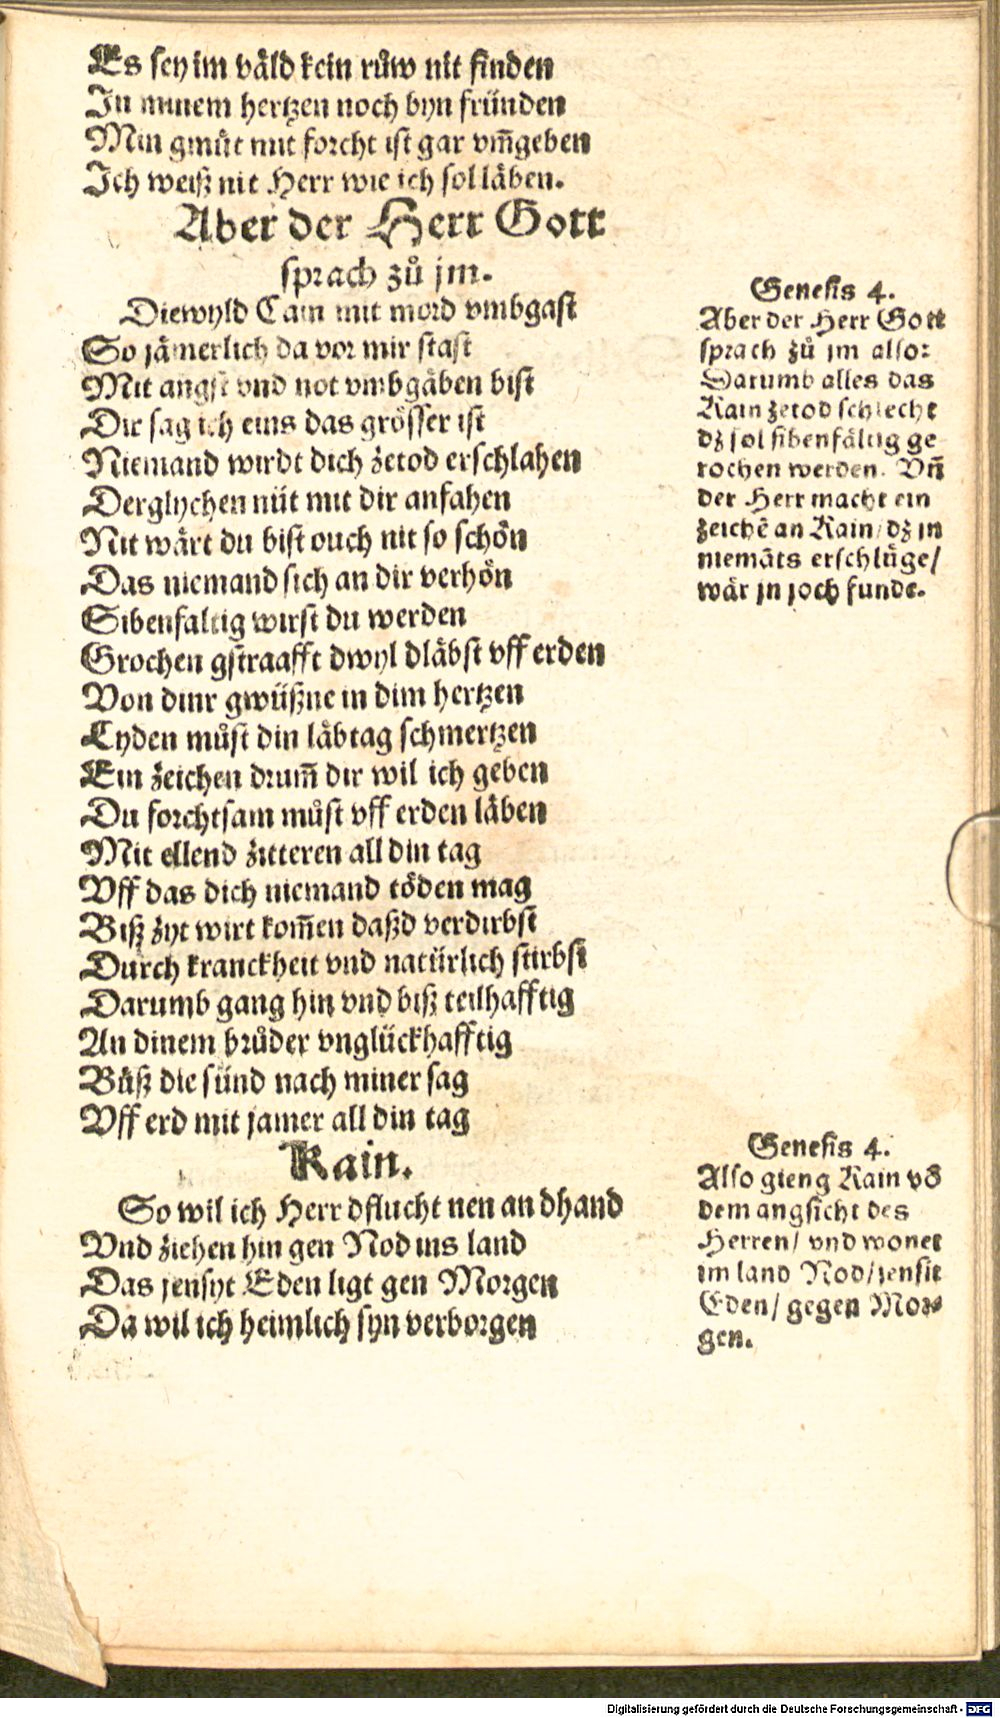 Es sey im väld kein růw nit finden
In minem hertzen noch byn fründen
Min gmůt mit forcht ist gar vm̄geben
Ich weiß nit Herr wie ich sol läben.
Aber der Herr Gott
sprach zů jm.
Diewyld Cain mit mord vmbgast
So jämerlich da vor mir stast
Mit angst vnd not vmbgäben bist
Dir sag ich eins das grösser ist
Niemand wirdt dich zetod erschlahen
Derglychen nüt mit dir anfahen
Nit wärt du bist ouch nit so schön
Das niemand sich an dir verhön
Sibenfaltig wirst du werden
Grochen gstraafft dwyl dläbst vff erden
Von dinr gwüßne in dim hertzen
Lyden můst din läbtag schmertzen
Ein zeichen drum̄ dir wil ich geben
Du forchtsam můst vff erden läben
Mit ellend zitteren all din tag
Vff das dich niemand töden mag
Biß zyt wirt kom̄en daßd verdirbst
Durch kranckheit vnd natürlich stirbst
Darumb gang hin vnd biß teilhafftig
An dinem brůder vnglückhafftig
Büß die sünd nach miner sag
Vff erd mit jamer all din tag
Kain.
So wil ich Herr dflucht nen an dhand
Vnd ziehen hin gen Nod ins land
Das jensyt Eden ligt gen Morgen
Da wil ich heimlich syn verborgen
Genesis 4.
Aber der Herr Gott
sprach zů jm also:
Darumb alles das
Kain zetod schlecht
dz sol sibenfältig ge
rochen werden. Vn̄
der Herr macht ein
zeichē an Kain/ dz jn
niemāts erschlüge/
wär jn joch funde.
Genesis 4.
Also gieng Kain vō
dem angsicht des
Herren/ vnd wonet
im land Nod/ jensit
Eden/ gegen Mor⸗
gen.
Digitalisierung gefördert durch die Deutsche Forschungsgemeinschaft - DFG